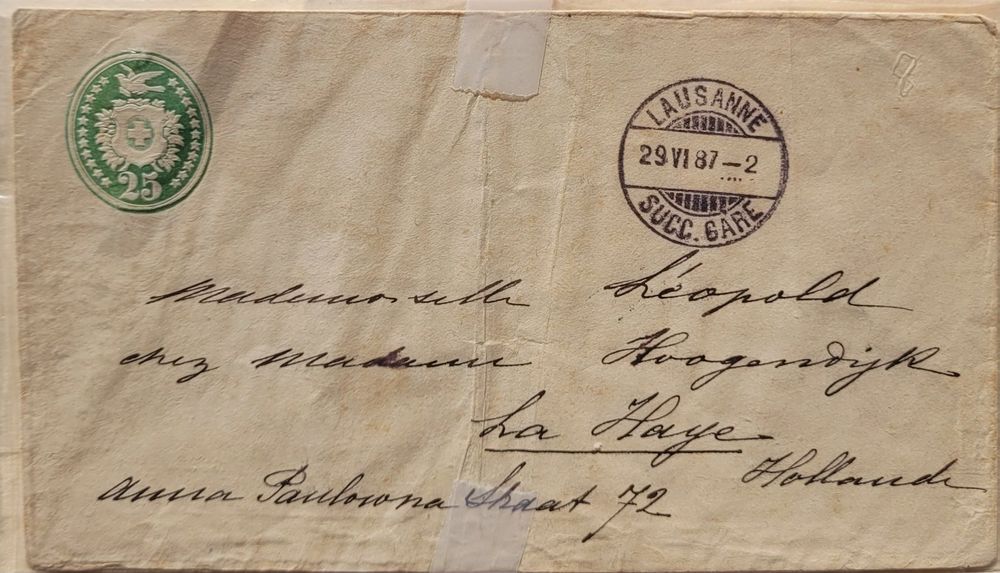 25
LAUSANNE
29 VI 87–2
SUCC. GARE
Mademoiselle Léopold
chez Madame Hoogendijk
La Haye
Hollande
Anna Paulowna Straat 72